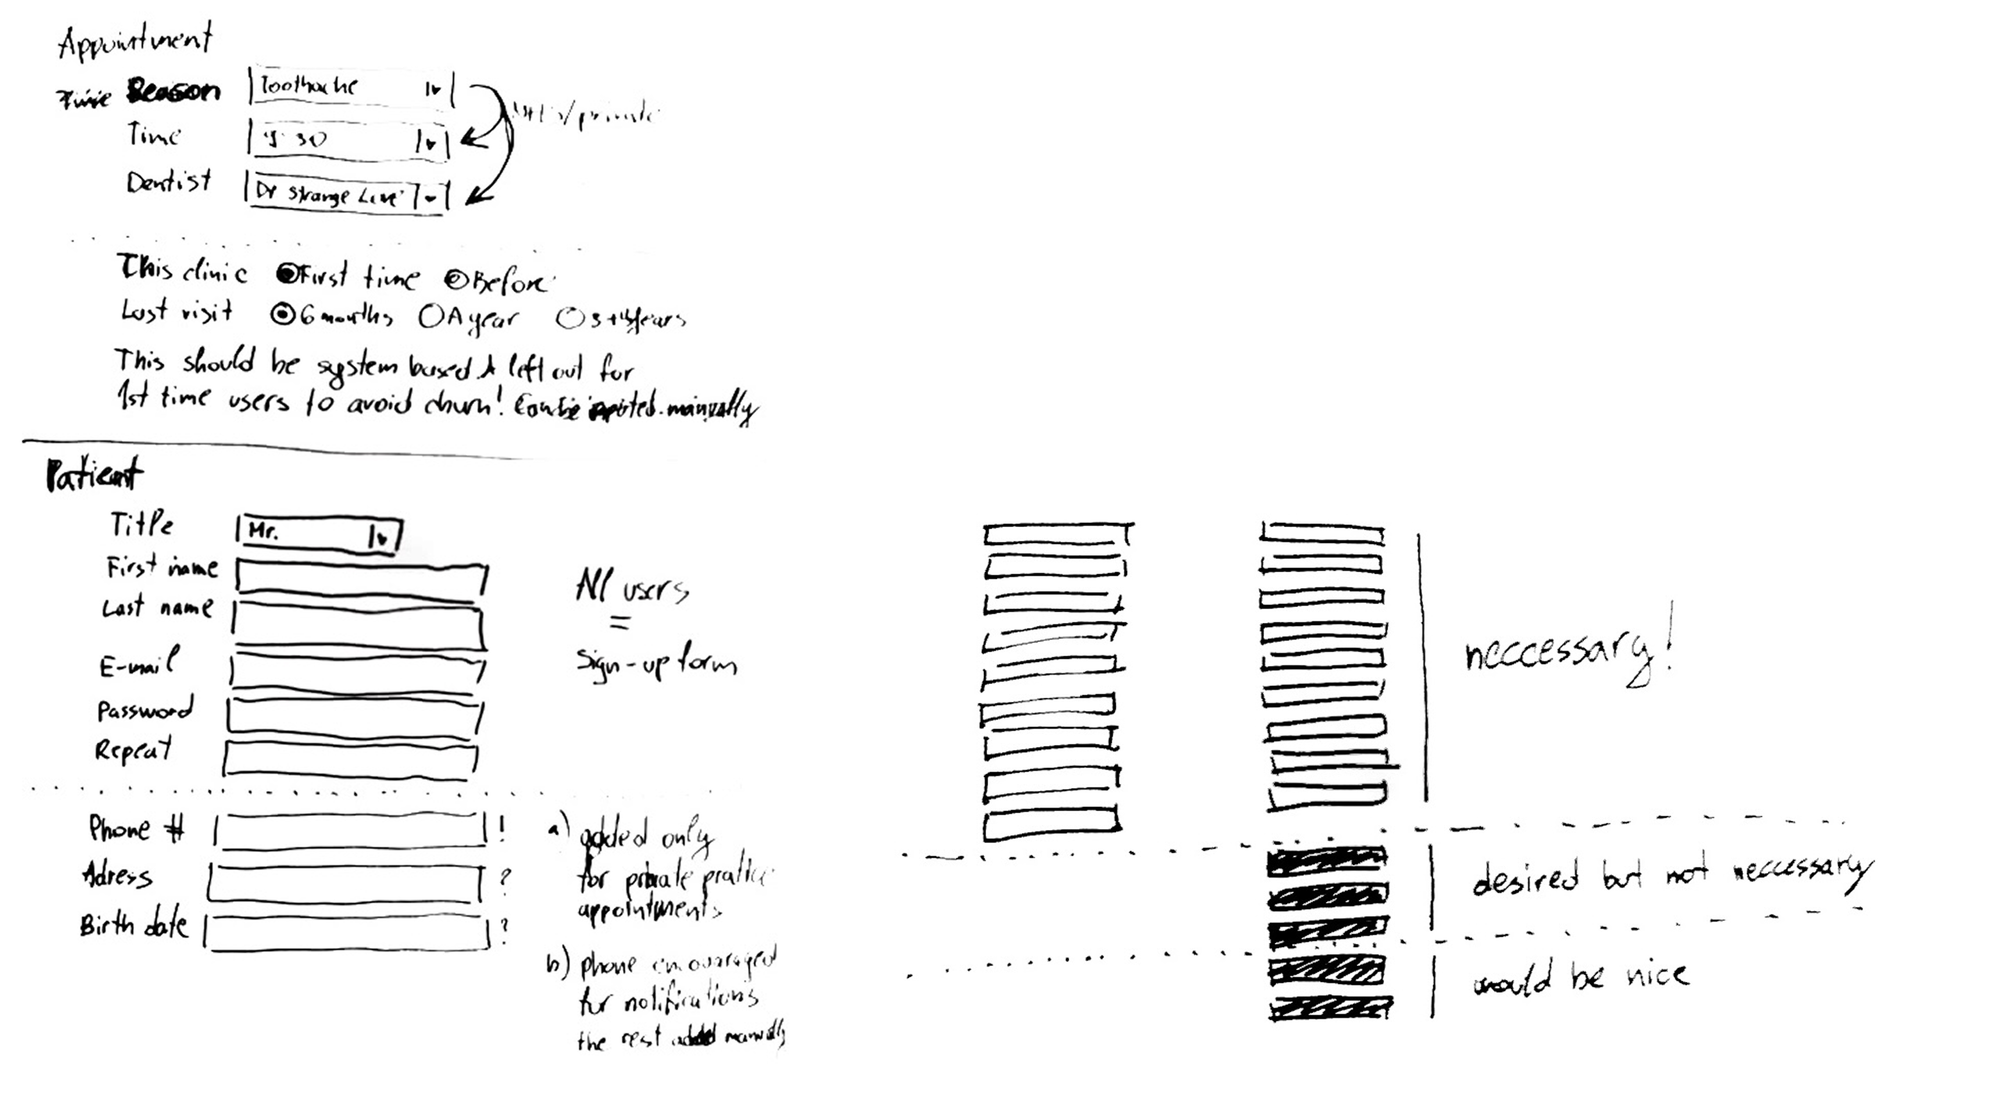 Appointment
Time Reason Toothache
Time 9:30
Dentist Dr Strange Love
/private
This clinic First time Before
Last visit 6 months A year 3+ years
This should be system based & left out for
1st time users to avoid churn! manually
Patient
Title Mr.
First name
Last name
E-mail
Password
Repeat
All users
=
Sign-up form
Phone # !
Adress ?
Birth date ?
a) added only
for private practice
appointments
b) phone encouraged
for notifications
the rest added manually
neccessary!
desired but not neccessary
would be nice